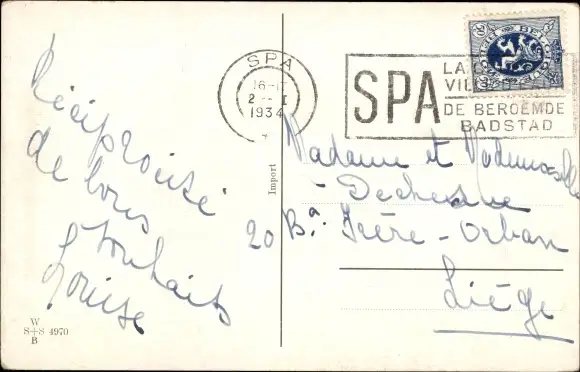 Réciprocité
de bons
souhaits
Louise
W
S+S 4970
B
Import
SPA
16-I
2 - I
1934
SPA
LA
VILL
DE BEROEMDE
BADSTAD
Madame et Mademoiselle
Dechesne
20 Bd. Frère-Orban
Liège